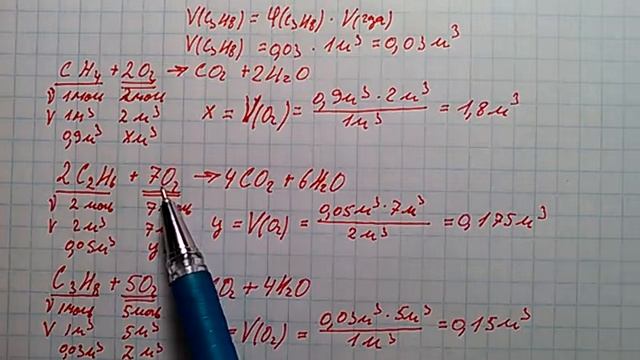 V(C₃H₈) = φ(C₃H₈) · V(газа)
V(C₃H₈) = 0,03 · 1м³ = 0,03м³
CH₄ + 2O₂ → CO₂ + 2H₂O
ν 1моль 2моль
V 1м³ 2м³
0,9м³ xм³
x = V(O₂) = 0,9м³ · 2м³ / 1м³ = 1,8м³
2C₂H₆ + 7O₂ → 4CO₂ + 6H₂O
ν 2моль 7
V 2м³ 7
0,05м³ y
y = V(O₂) = 0,05м³ · 7м³ / 2м³ = 0,175м³
C₃H₈ + 5O₂ O₂ + 4H₂O
ν 1моль 5моль
V 1м³ 5м³
0,03м³ z м³
= V(O₂) = 0,03м³ · 5м³ / 1м³ = 0,15м³